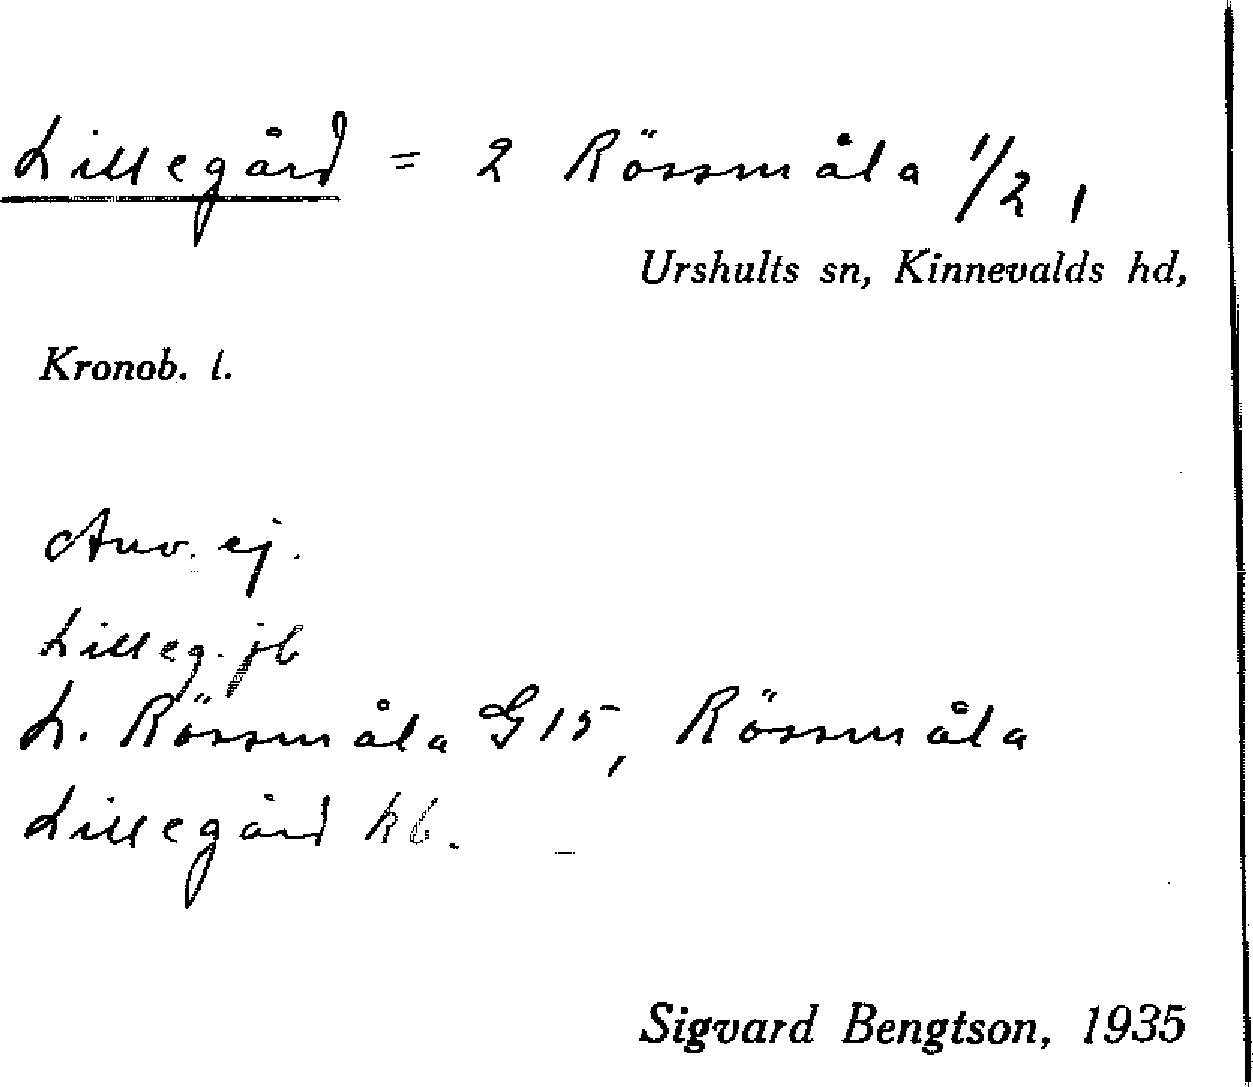 Lillegård = 2 Rössmåla 1/2,
Urshults sn, Kinnevalds hd,
Kronob. l.
Anv. ej.
Lilleg. jb
L. Rössmåla G15, Rössmåla
Lillegård kb.
Sigvard Bengtson, 1935